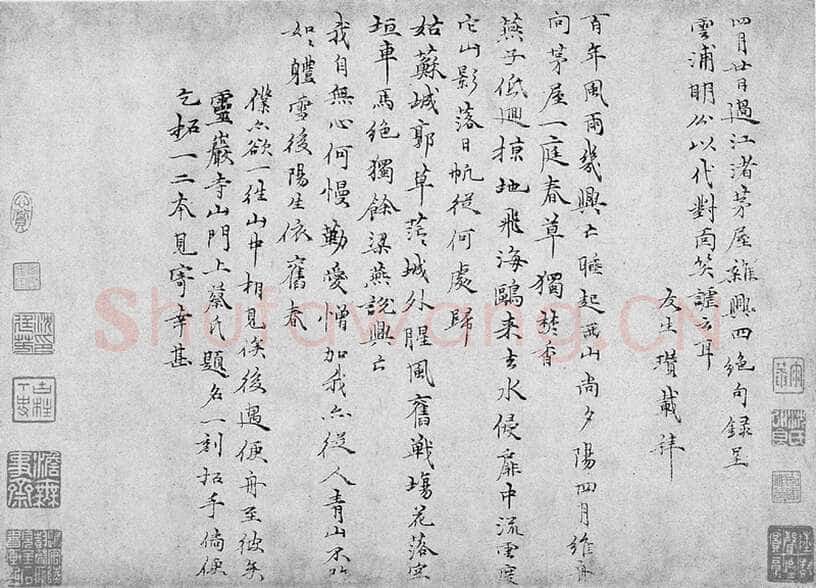 四月廿日過江渚茅屋雜興四絶句録呈
雲浦明公以代對面笑謔云耳
友生瓚載拜
百年風雨幾興亡睡起西山尚夕陽四月維舟
向茅屋一庭春草獨焚香
燕子低迴掠地飛海鷗来去水侵扉中流雲度
它山影落日帆從何處歸
姑蘇城郭草茫〻城外腥風舊戰場花落空
垣車馬絶獨餘梁燕説興亡
我自無心何慢勤愛憎加我亦從人青山不
如〻體雪後陽生依舊春
僕亦欲一往山中相見俟後遇便舟至彼矣
靈巖寺山門上蔡氏題名一刻拓手倘便
乞拓一二本見寄幸甚
Shufawang.CN